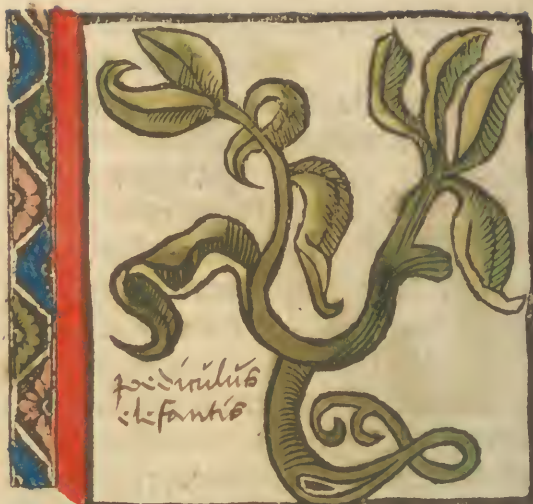 pediculus
elefantis